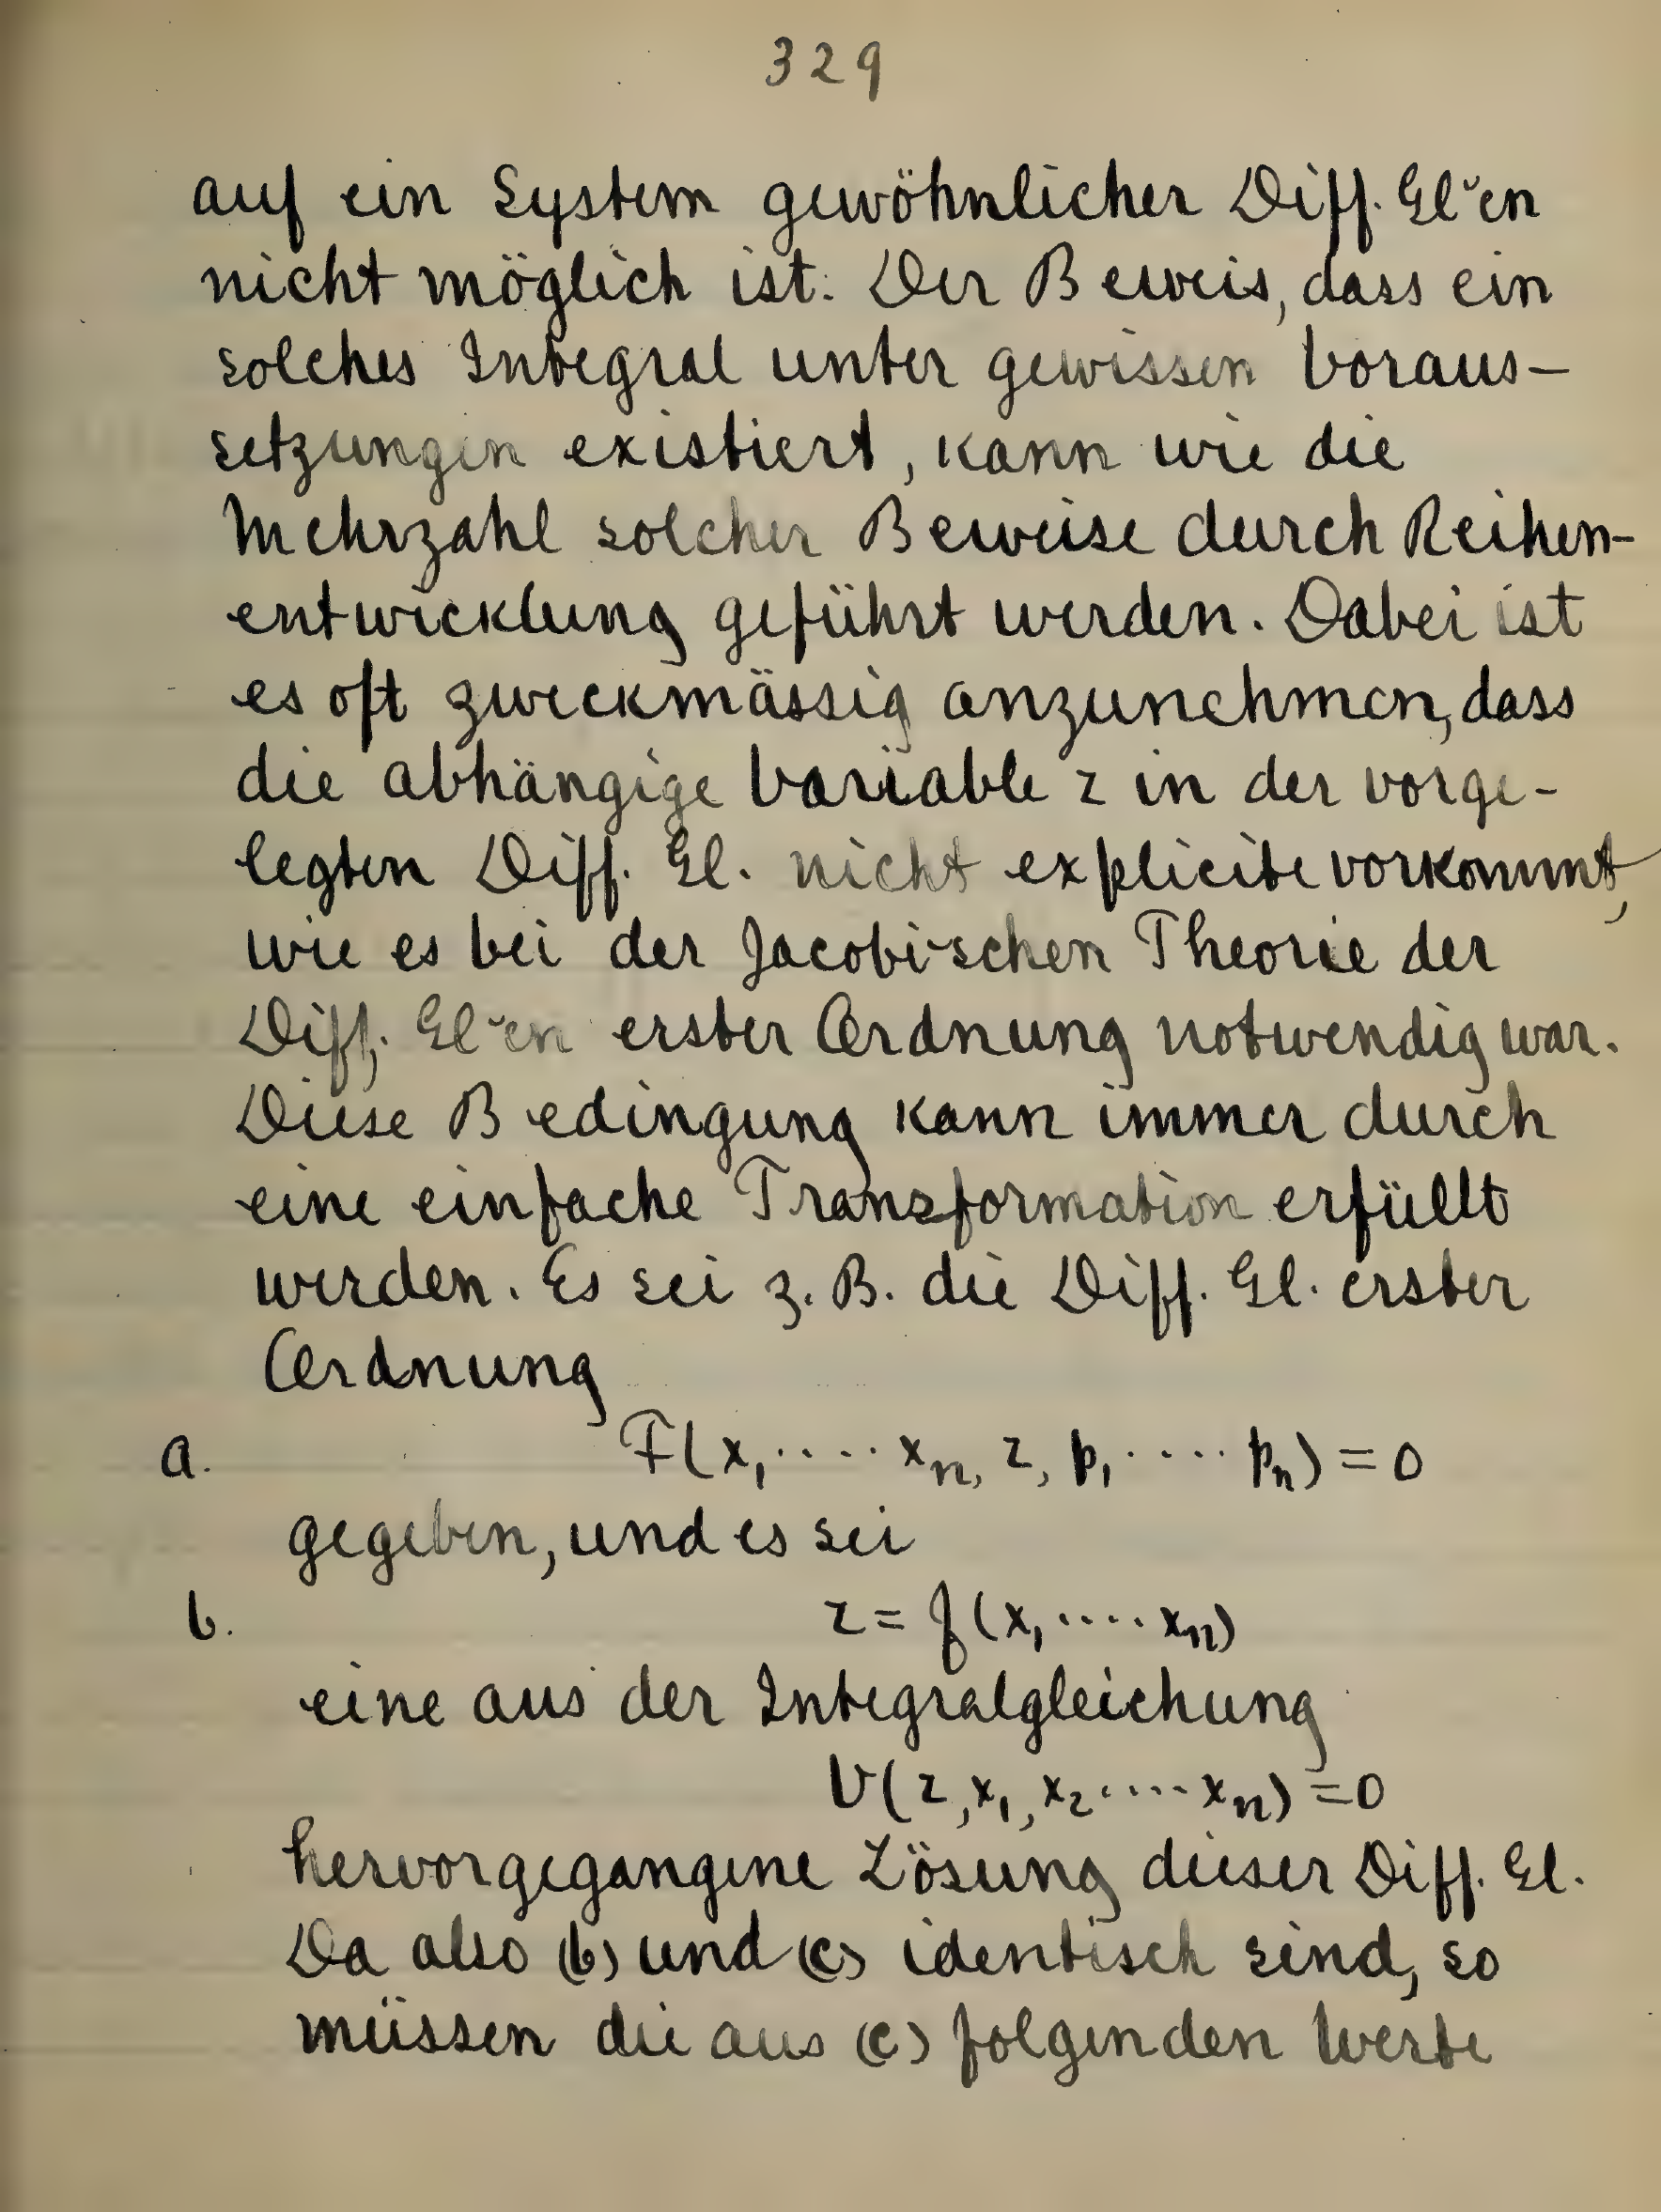 329
auf ein System gewöhnlicher Diff. Gl~en
nicht möglich ist. Der Beweis, dass ein
solches Integral unter gewissen Voraus-
setzungen existiert, kann wie die
Mehrzahl solcher Beweise durch Reihen-
entwicklung geführt werden. Dabei ist
es oft zweckmässig anzunehmen, dass
die abhängige Variable z in der vorge-
legten Diff. Gl. nicht explicite vorkommt,
wie es bei der Jacobi-schen Theorie der
Diff. Gl~en erster Ordnung notwendig war.
Diese Bedingung kann immer durch
eine einfache Transformation erfüllt
werden. Es sei z. B. die Diff. Gl. erster
Ordnung
a. F(x₁ ····· xₙ, z, p₁ ····· pₙ) = 0
gegeben, und es sei
b. z = f(x₁ ····· xₙ)
eine aus der Integralgleichung
V(z, x₁, x₂ ····· xₙ) = 0
hervorgegangene Lösung dieser Diff. Gl.
Da also (b) und (c) identisch sind, so
müssen die aus (c) folgenden Werte